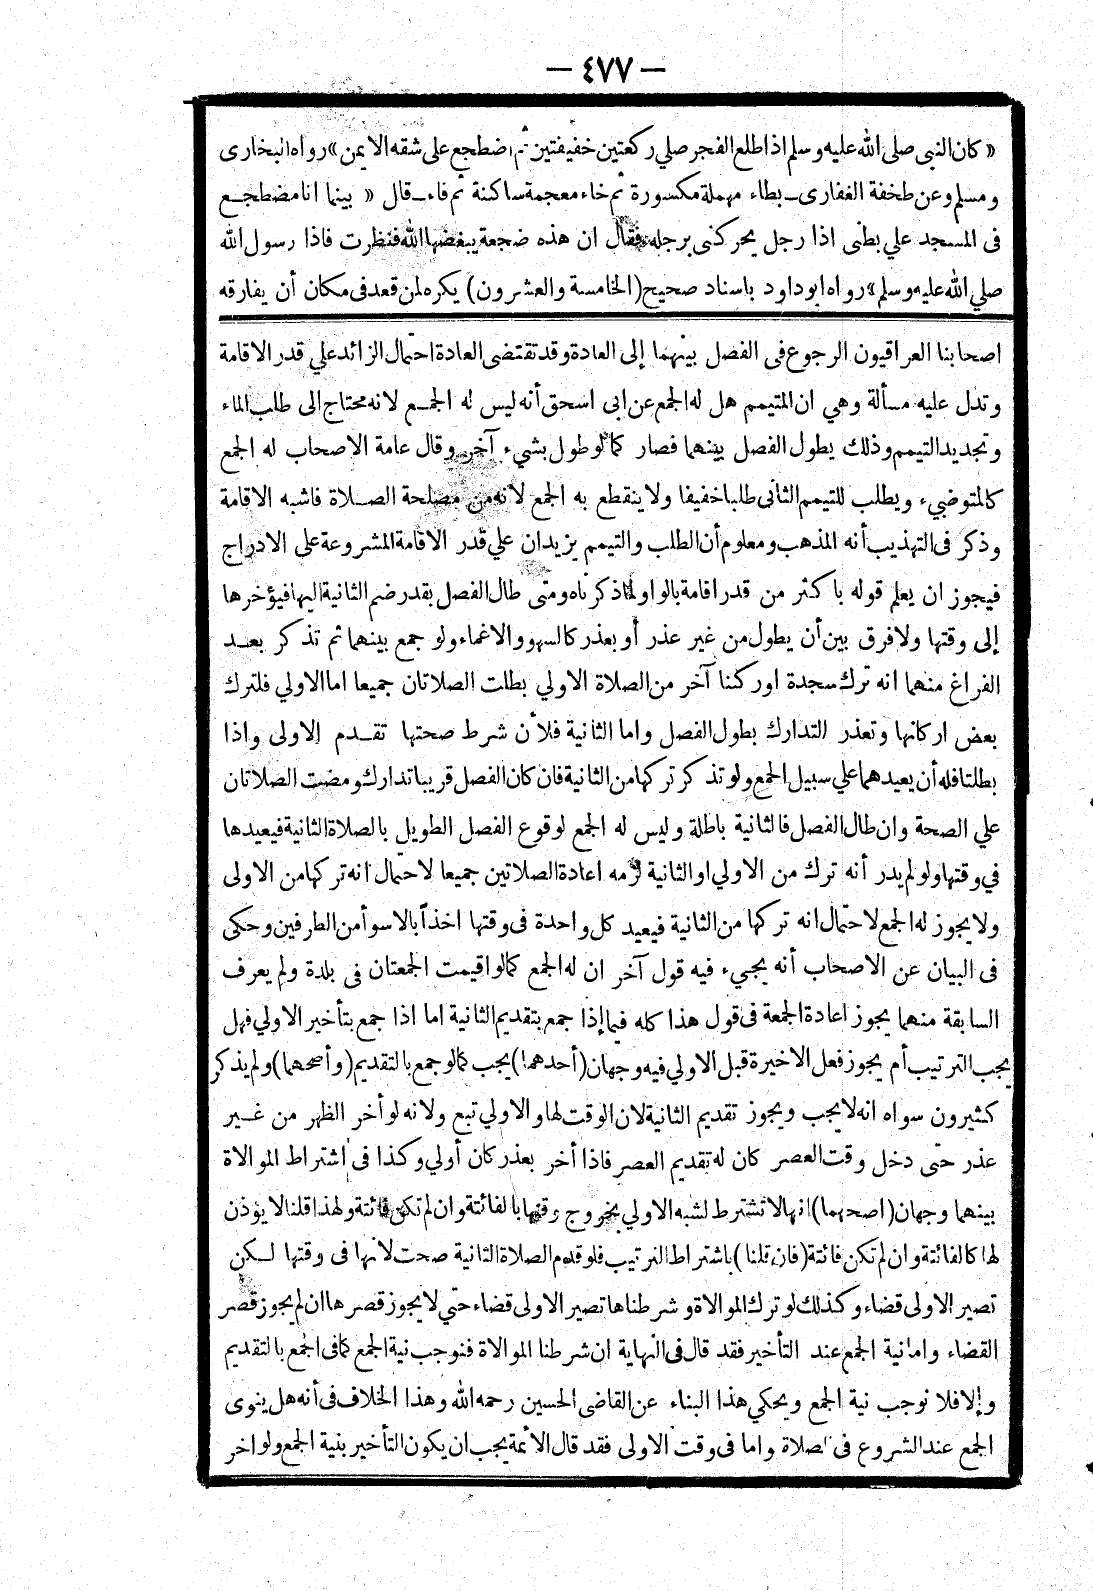 — ٤٧٧ —
« كان النبى صلى الله عليه وسلم اذا طلع الفجر صلي ركعتين خفيفتين ثم اضطجع على شقه الايمن » رواه البخارى
ومسلم وعن طخفة الغفارى ــ بطاء مهملة مكسورة ثم خاء معجمة ساكنة ثم فاء ــ قال « بينما انا مضطجع
فى المسجد علي بطنى اذا رجل يحركنى برجله فقال ان هذه ضجعة يبغضها الله فنظرت فاذا رسول الله
صلي الله عليه وسلم » رواه ابو داود باسناد صحيح ( الخامسة والعشرون ) يكره لمن قعد فى مكان أن يفارقه
اصحابنا العراقيون الرجوع فى الفصل بينهما إلى العادة وقد تقتضى العادة احتمال الزائد علي قدر الاقامة
وتدل عليه مسألة وهي ان المتيمم هل له الجمع عن ابى اسحق أنه ليس له الجمع لانه محتاج الى طلب الماء
وتجديد التيمم وذلك يطول الفصل بينهما فصار كما لو طول بشيء آخر وقال عامة الاصحاب له الجمع
كالمتوضيء ويطلب للتيمم الثانى طلبا خفيفا ولا ينقطع به الجمع لانه من مصلحة الصلاة فاشبه الاقامة
وذكر فى التهذيب أنه المذهب ومعلوم أن الطلب والتيمم يزيدان علي قدر الاقامة المشروعة علي الادراج
فيجوز ان يعلم قوله باكثر من قدر اقامة بالواو لما ذكرناه ومتى طال الفصل بقدر ضم الثانية اليها فيؤخرها
إلى وقتها ولا فرق بين أن يطول من غير عذر أو بعذر كالسهو والاغماء ولو جمع بينهما ثم تذكر بعد
الفراغ منهما انه ترك سجدة او ركنا آخر من الصلاة الاولي بطلت الصلاتان جميعا اما الاولي فلترك
بعض اركانها وتعذر التدارك بطول الفصل واما الثانية فلأن شرط صحتها تقدم الاولى واذا
بطلتا فله أن يعيدهما علي سبيل الجمع ولو تذكر تركها من الثانية فان كان الفصل قريبا تدارك ومضت الصلاتان
علي الصحة وان طال الفصل فالثانية باطلة وليس له الجمع لوقوع الفصل الطويل بالصلاة الثانية فيعيدها
في وقتها ولو لم يدر أنه ترك من الاولي او الثانية لزمه اعادة الصلاتين جميعا لاحتمال انه تركها من الاولى
ولا يجوز له الجمع لاحتمال انه تركها من الثانية فيعيد كل واحدة فى وقتها اخذاً بالاسوأ من الطرفين وحكى
فى البيان عن الاصحاب أنه يجيء فيه قول آخر ان له الجمع كما لو اقيمت الجمعتان فى بلدة ولم يعرف
السابقة منهما يجوز اعادة الجمعة فى قول هذا كله فيما إذا جمع بتقديم الثانية اما اذا جمع بتأخير الاولي فهل
يجب الترتيب أم يجوز فعل الاخيرة قبل الاولي فيه وجهان ( أحدهما ) يجب كما لو جمع بالتقديم ( وأصحهما ) ولم يذكر
كثيرون سواه انه لا يجب ويجوز تقديم الثانية لان الوقت لها والاولي تبع ولانه لو أخر الظهر من غير
عذر حتى دخل وقت العصر كان له تقديم العصر فاذا أخر بعذر كان أولي وكذا فى اشتراط الموالاة
بينهما وجهان ( اصحهما ) انها لا تشترط لشبه الاولي بخروج وقتها بالفائتة وان لم تكن فائتة ولهذا قلنا لا يؤذن
لها كالفائتة وان لم تكن فائتة ( فان قلنا ) باشتراط الترتيب فلو قدم الصلاة الثانية صحت لانها فى وقتها لكن
تصير الاولى قضاء وكذلك لو ترك الموالاة وشرطناها تصير الاولى قضاء حتي لا يجوز قصرها ان لم يجوز قصر
القضاء واما نية الجمع عند التأخير فقد قال فى النهاية ان شرطنا الموالاة فنوجب نية الجمع كما فى الجمع بالتقديم
وإلا فلا نوجب نية الجمع ويحكي هذا البناء عن القاضى الحسين رحمه الله وهذا الخلاف فى أنه هل ينوى
الجمع عند الشروع فى الصلاة واما فى وقت الاولى فقد قال الائمة يجب ان يكون التأخير بنية الجمع ولو اخر